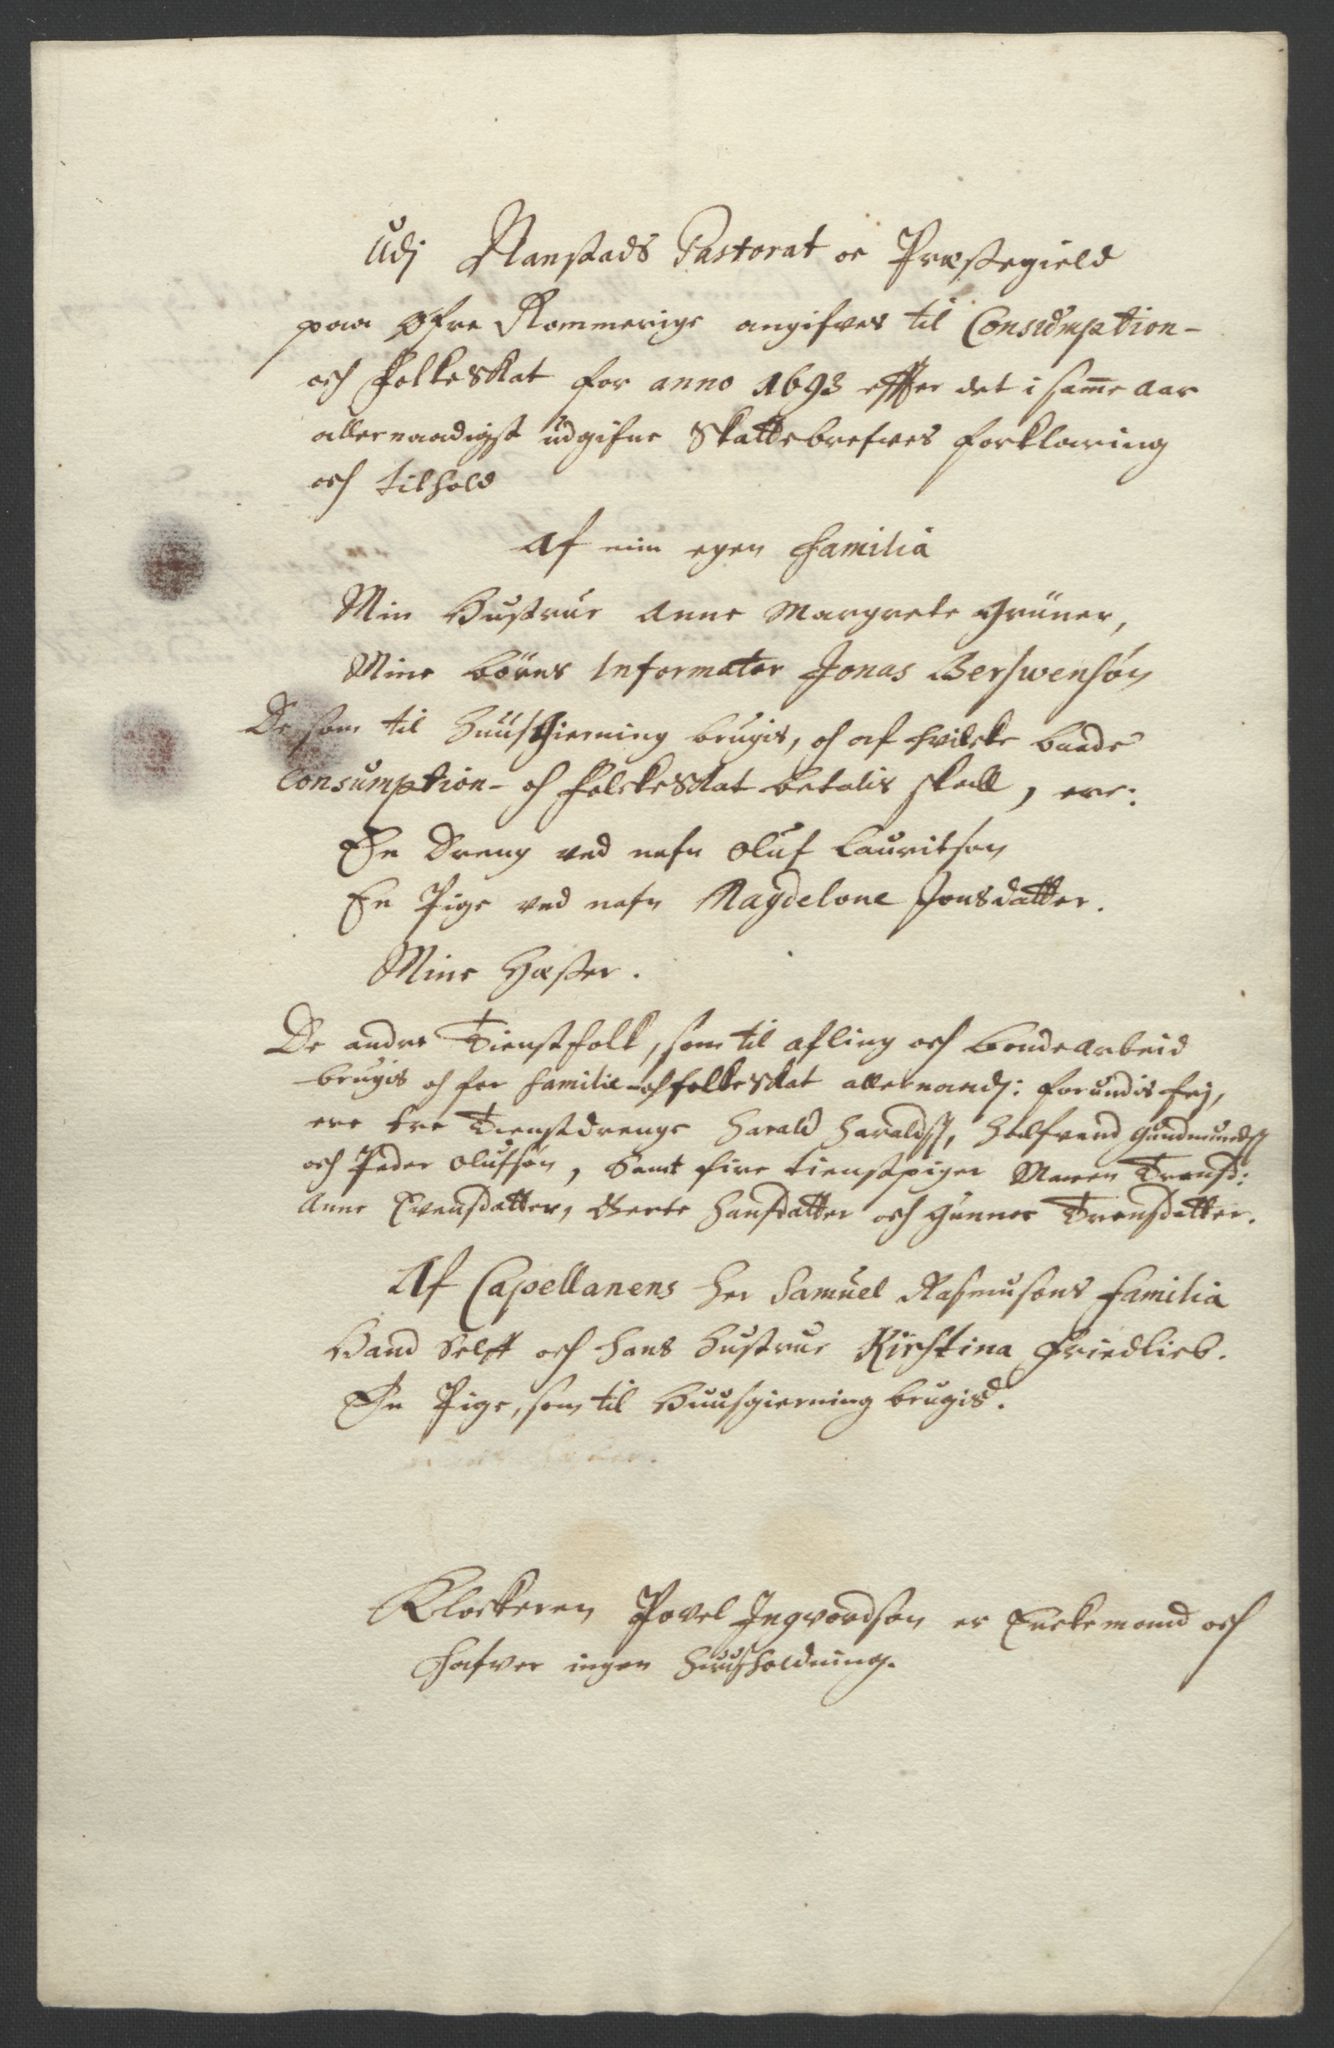 Udj Nanstads Pastorat oc Præstegield
paa Øfre Rommerige angifves til Consumption-
och Folkeskat for anno 1693 effter det i samme Aar
allernaadigst udgifne Skattebrefves forklaring
och tilhold
Af min egen Familia
Min Hustrue Anne Margrete Grüner,
Mine börns Informator Jonas Berswensøn
De som til Huusgierning brugis, och af hvilcke baade
Consumption- och Folckeskat betalis skall, ere:
En Dreng ved nafn Oluf Lauritson
En Pige ved nafn Magdelone Jonsdatter.
Mine Hæster.
De andre Tienstfolk, som til afling och bondearbeid
brugis och for familie- och folkeskat allernaadj: forundis frj,
ere tre Tienstdrenge Harald Haralds, Halfvard Gundmunds
och Peder Olufsøn, Samt fire tienstpiger Maren Tronsd:
Anne Evensdatter, Berte Hansdatter och Gunner Tronsdatter.
Af Capellanens Her Samuel Rasmusøns Familia
Hand Selff och hans Hustrue Kirstina Friedlieb.
En Pige, som til Huusgierning brugis.
Klockeren Povel Ingvordson er Enckemand och
hafver ingen Huusholdning.